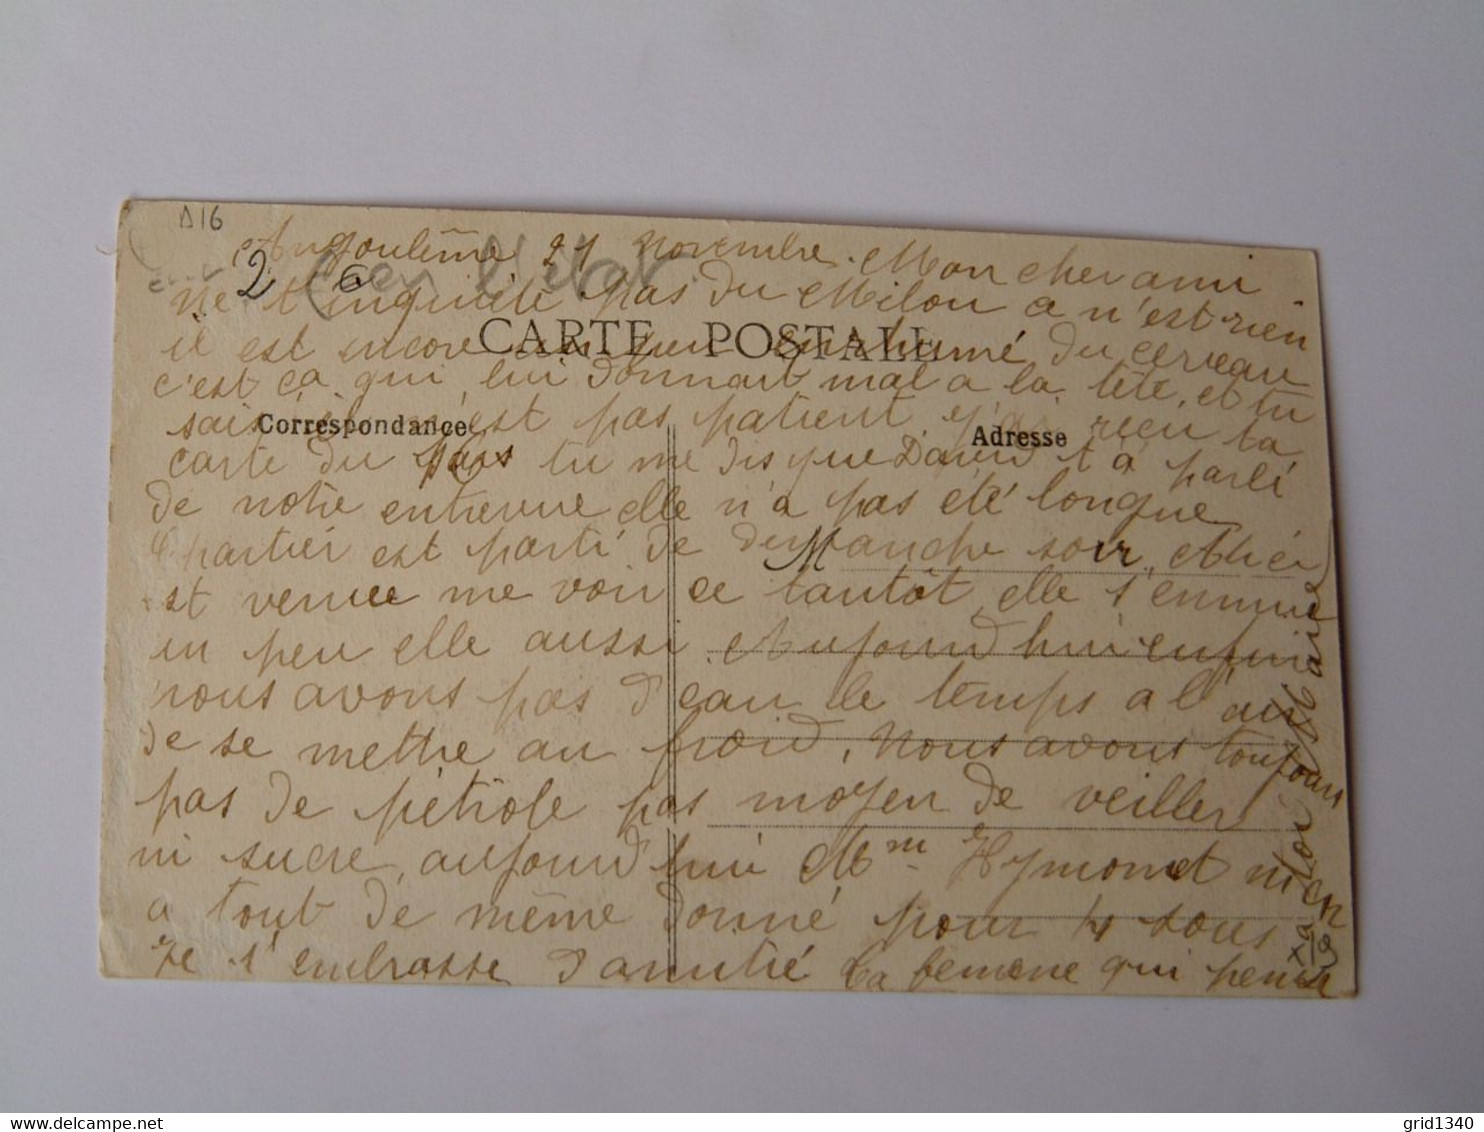 D16
2 6 en l'état
Angoulême 21 Novembre. Mon cher ami
ne t'inquiète pas du Milou a n'est rien
CARTE POSTALE
il est encore un peu enrhumé du cerveau
c'est ça qui lui donnait mal a la tête, et tu
sais il n'est pas patient. j'ai reçu ta
Correspondance
Adresse
carte du tu me dis que David t'a parlé
de notre entrevue elle n'a pas été longue
Chartier est parti de dimanche soir,
est venue me voir ce tantôt, elle s'ennuie
un peu elle aussi. Aujourd hui
nous avons pas d'eau le temps a l'air
de se mettre au froid, Nous avons toujours
pas de pétrole pas moyen de veiller
ni sucre, aujourd hui Mm Hymonet m'en
a tout de même donné pour 4 sous
Je t'embrasse d'amitié ta femme qui pense
a toi Marie